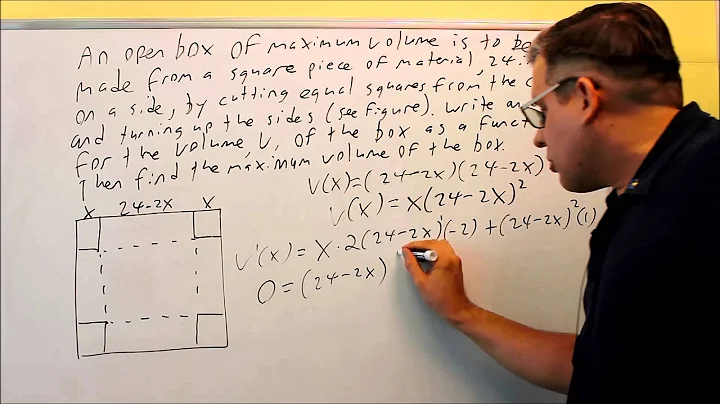 An open box of maximum volume is to be
made from a square piece of material, 24
on a side, by cutting equal squares from the
and turning up the sides (see figure). Write an
for the volume, V, of the box as a
Then find the maximum volume of the box.
V(x)=(24-2x)(24-2x)
V(x)=x(24-2x)²
x 24-2x x
V'(x)= x·2(24-2x)¹(-2)+(24-2x)²(1)
0=(24-2x)